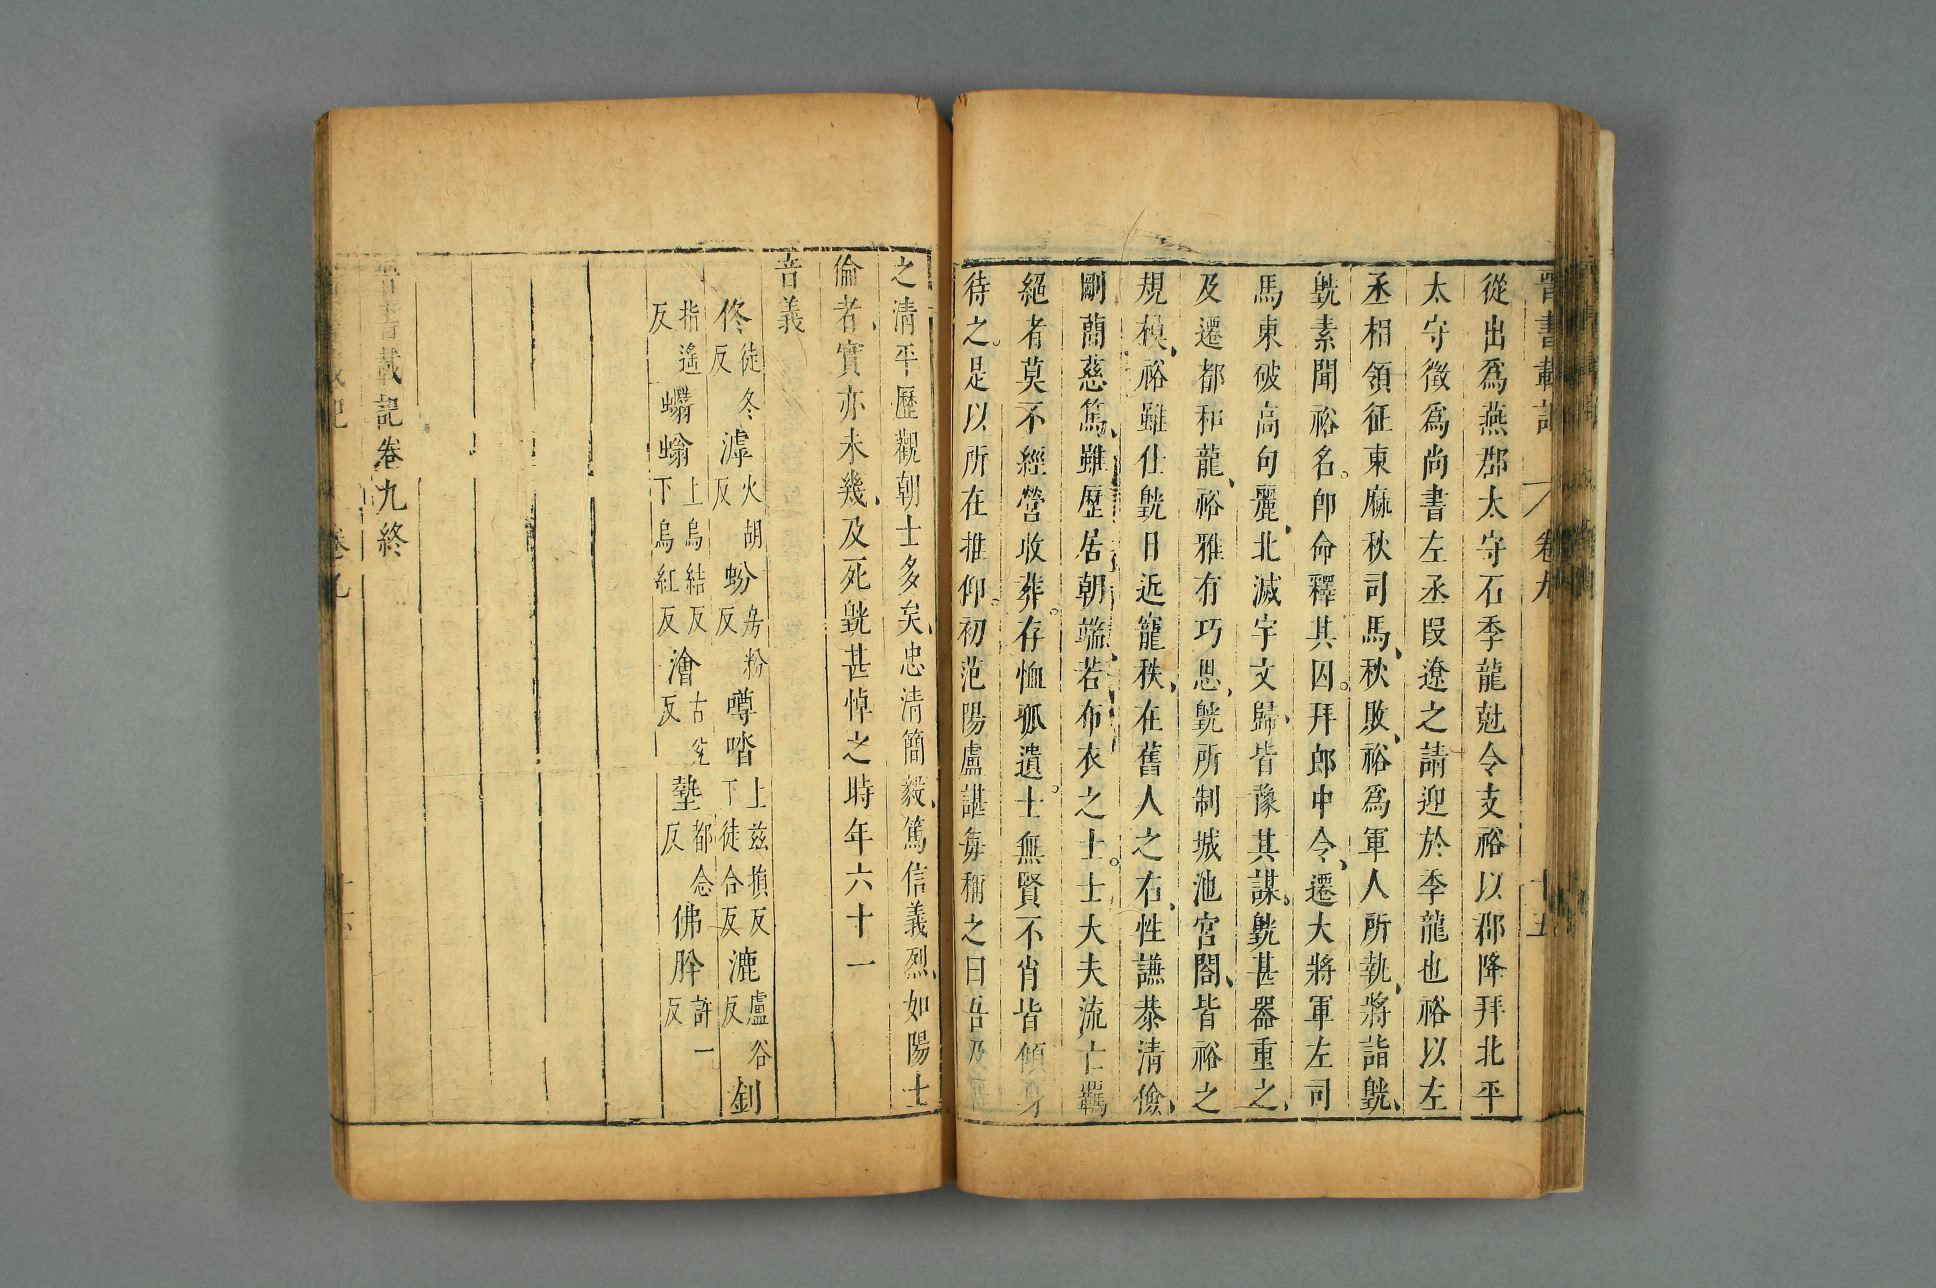 晉書載記 卷九 十五
從出爲燕郡太守石季龍尅令支裕以郡降拜北平
太守徵爲尚書左丞段遼之請迎於季龍也裕以左
丞相領征東麻秋司馬秋敗裕爲軍人所執將詣皝
皝素聞裕名即命釋其囚拜郎中令遷大將軍左司
馬東破高句麗北滅宇文歸皆豫其謀皝甚器重之
及遷都和龍裕雅有巧思皝所制城池宮閤皆裕之
規模裕雖仕皝日近寵秩在舊人之右性謙恭清儉
剛簡慈篤雖歷居朝端若布衣之士士大夫流亡羈
絕者莫不經營收葬存恤孤遺士無賢不肖皆傾身
待之是以所在推仰初范陽盧諶每稱之曰吾及
之清平歷觀朝士多矣忠清簡毅篤信義烈如陽士
倫者實亦未幾及死皝甚悼之時年六十一
音義
佟徒冬反 滹火胡反 蚡房粉反 噂㗳上兹損反下徒合反 漉盧谷反 釗
指遙反 蠮螉上烏結反下烏紅反 澮古兊反 墊都念反 佛肸許一反
晉書載記卷九終
卷九